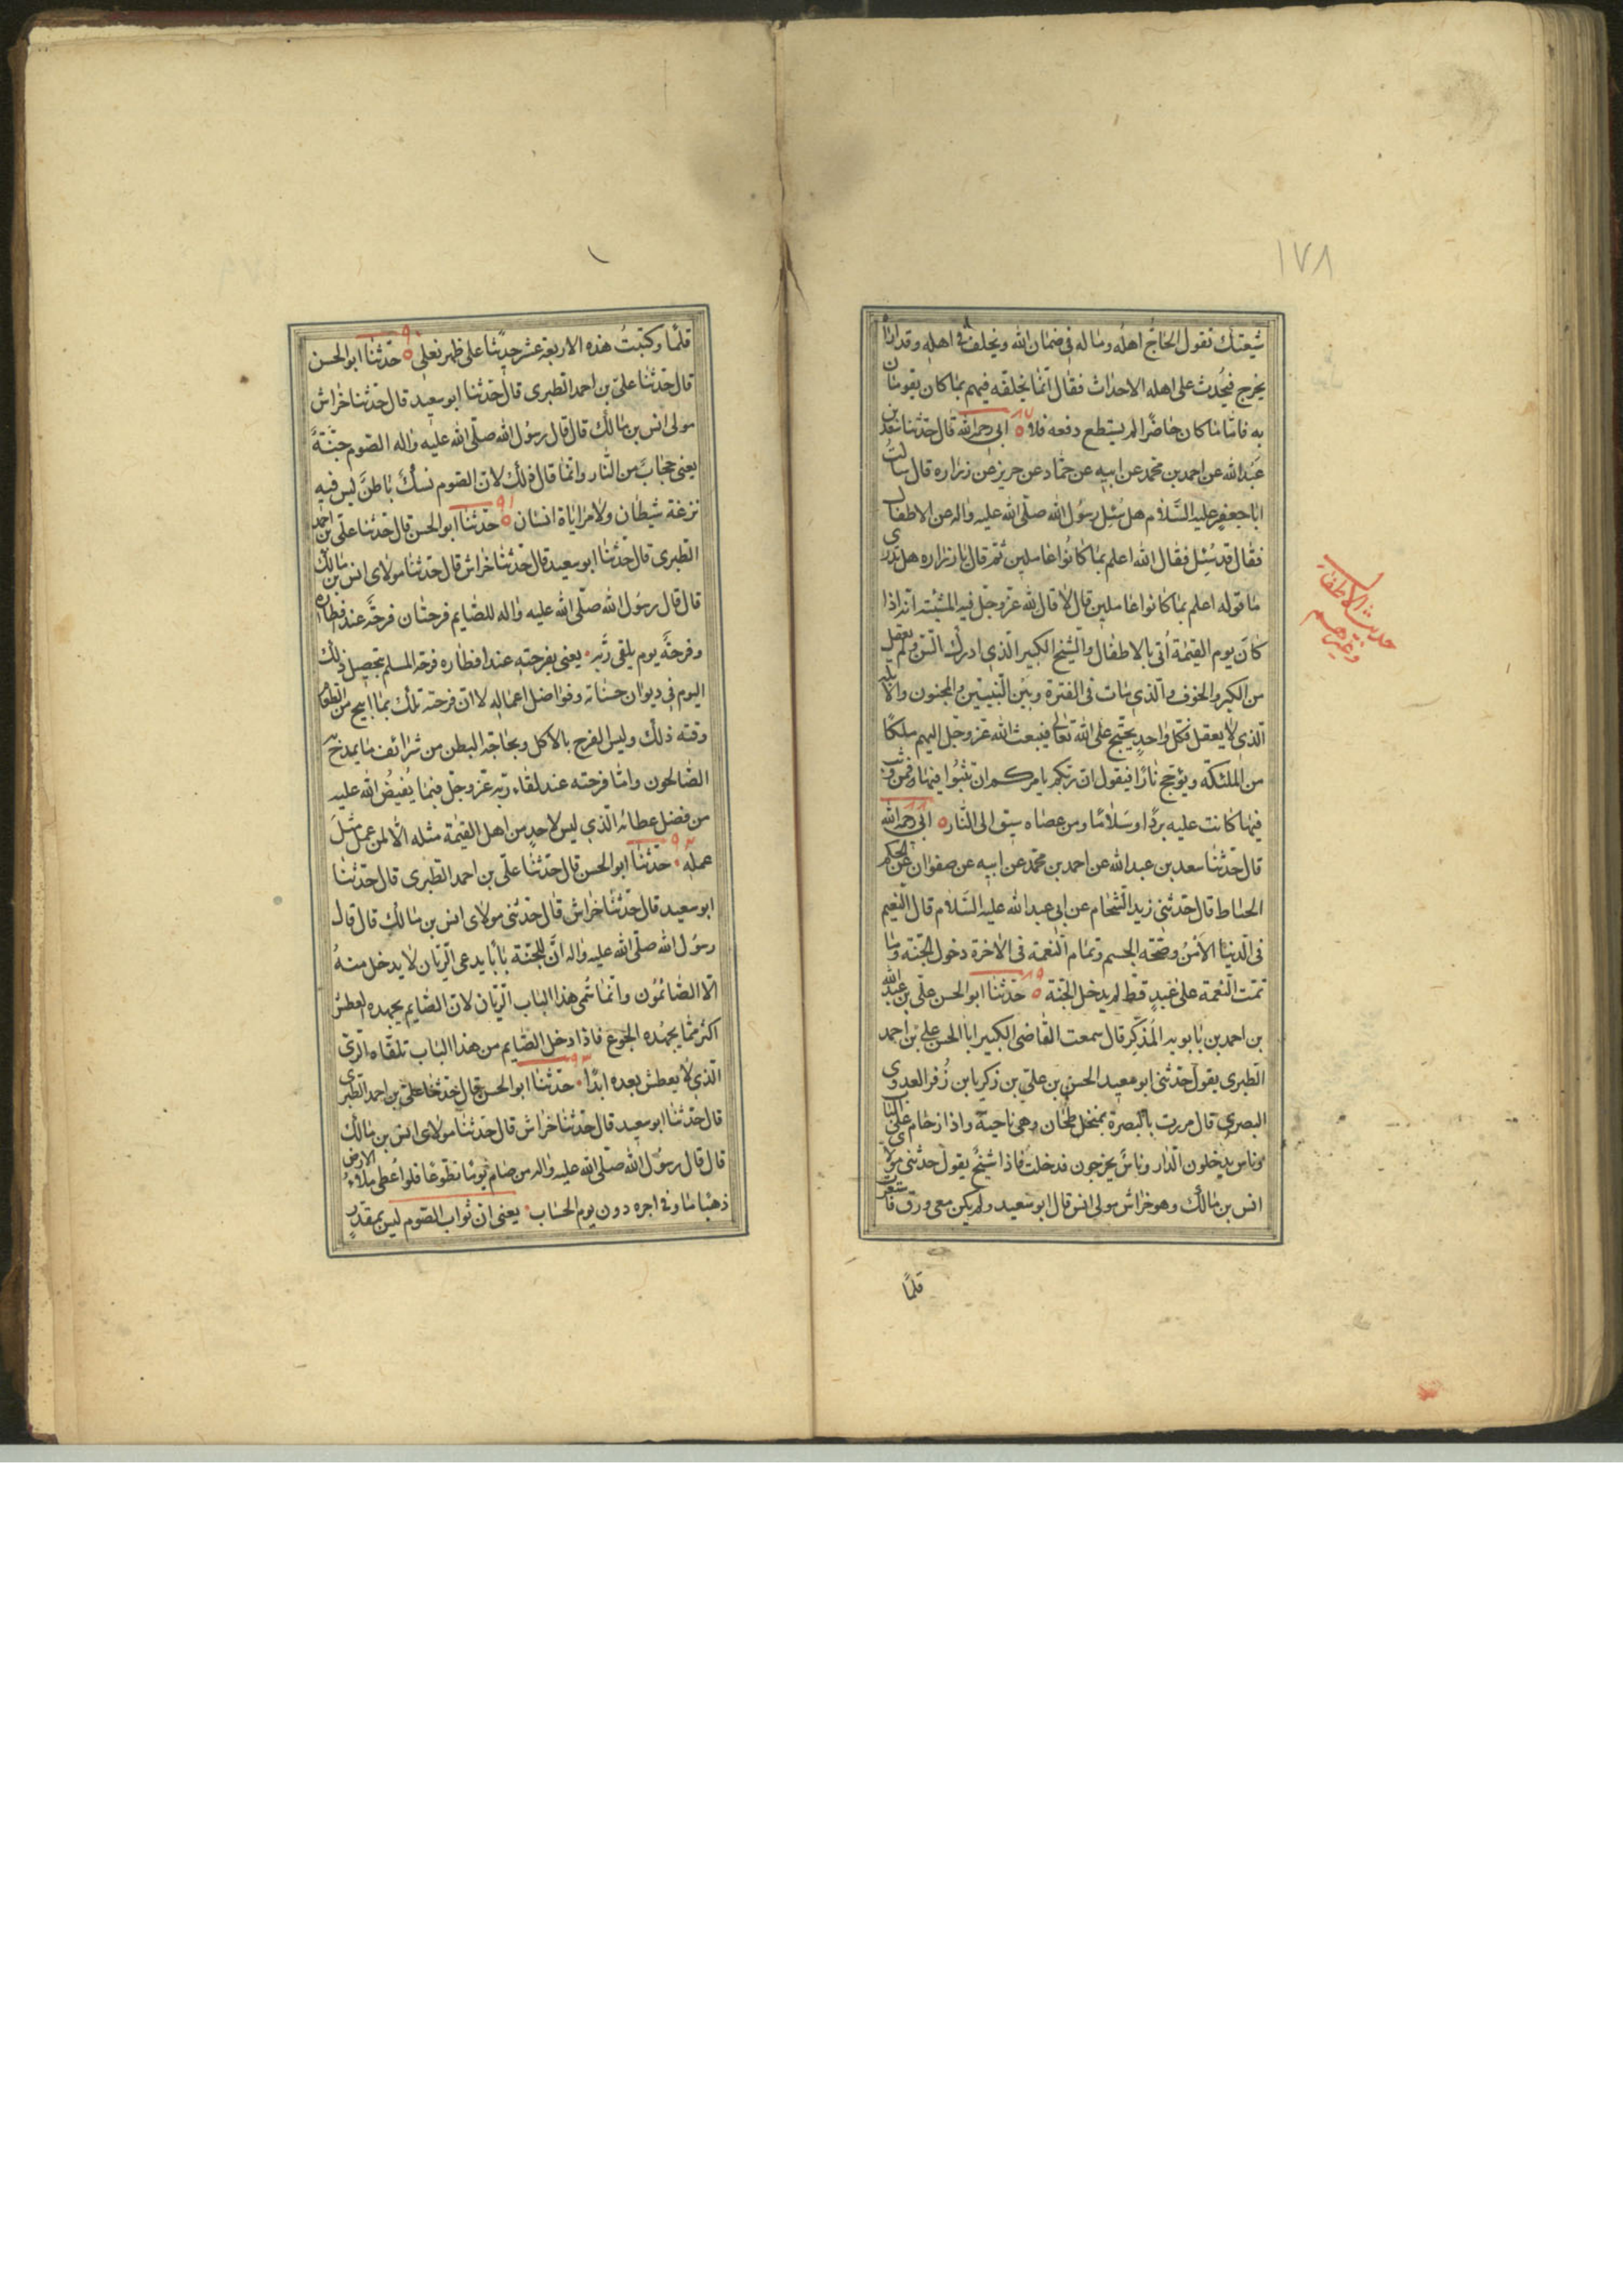 ١٧٨
شيعتك تقول الحاج اهله وماله في ضمان الله ويخلف في اهله وقد اراه
يخرج فيحدث على اهله الاحداث فقال انما يخلفه فيهم بما كان يقوم
به فاما ما كان حاضرا لم يستطع دفعه فلا ٥ ٨٧ ابي رحمه الله قال حدثنا سعد بن
عبد الله عن احمد بن محمد عن ابيه عن حماد عن حريز عن زراره قال سالت
ابا جعفر عليه السلام هل سئل رسول الله صلى الله عليه واله عن الاطفال
فقال قد سئل فقال الله اعلم بما كانوا عاملين ثم قال يا زراره هل تدرى
ما قوله اعلم بما كانوا عاملين قال لا قال لله عز وجل فيهم المشيئة انه اذا
كان يوم القيمة أتى بالاطفال والشيخ الكبير الذي ادرك السن ولم يعقل
من الكبر والخرف والذي مات في الفترة وبين النبيين والمجنون والابله
الذي لا يعقل فكل واحد يحتج على الله تعالى فيبعث الله عز وجل اليهم ملكا
من الملئكة ويؤجج نارا فيقول ان ربكم يامركم ان تثبوا فيها فمن وثب
فيها كانت عليه بردا وسلاما ومن عصاه سيق الى النار ٥ ٨٨ ابي رحمه الله
قال حدثنا سعد بن عبد الله عن احمد بن محمد عن ابيه عن صفوان عن الحكم
الحناط قال حدثنى زيد الشحام عن ابي عبد الله عليه السلام قال النعيم
في الدنيا الأمن وصحة الجسم وتمام النعمة في الاخرة دخول الجنة وما
تمت النعمة على عبد قط لم يدخل الجنة ٥ ٨٩ حدثنا ابو الحسن على بن عبد الله
بن احمد بن بابويه المذكر قال سمعت القاضى الكبير ابا الحسن على بن احمد
الطبرى يقول حدثنى ابو سعيد الحسن بن على بن زكريا بن زفر العدوى
البصري قال مررت بالبصرة بمنخل طحان وهي ناحية واذا زحام على الباب
وناس يدخلون الدار وناس يخرجون فدخلت فاذا شيخ يقول حدثنى مولاى
انس بن مالك وهو خراش مولى انس قال ابو سعيد ولم يكن معى ورق فاستعرت
قلما
حديث الاطفال
وغيرهم
قلما وكتبت هذه الاربعة عشر حديثا على ظهر نعلى ٥ ٩٠ حدثنا ابو الحسن
قال حدثنا على بن احمد الطبرى قال حدثنا ابو سعيد قال حدثنا خراش
مولى انس بن مالك قال قال رسول الله صلى الله عليه واله الصوم جنة
يعنى حجاب من النار وانما قال ذلك لان الصوم نسك باطن ليس فيه
نزغة شيطان ولا مراياة انسان ٥ ٩١ حدثنا ابو الحسن قال حدثنا على بن احمد
الطبرى قال حدثنا ابو سعيد قال حدثنا خراش قال حدثنا مولاى انس بن مالك
قال قال رسول الله صلى الله عليه واله للصايم فرحتان فرحة عند افطاره
وفرحة يوم يلقى ربه ٠ يعنى بفرحته عند افطاره فرحة المسلم بتحصيل ذلك
اليوم في ديوان حسناته وفواضل اعماله لا ان فرحته تلك بما ابيح من الطعام
وقته ذلك وليس الفرح بالاكل وبحاجة البطن من شرائف ما يمدح به
الصالحون واما فرحته عند لقاء ربه عز وجل فبما يفيض الله عليه
من فضل عطائه الذي ليس لاحد من اهل القيمة مثله الا لمن عمل مثل
عمله ٠ ٩٢ حدثنا ابو الحسن قال حدثنا على بن احمد الطبرى قال حدثنا
ابو سعيد قال حدثنا خراش قال حدثنى مولاى انس بن مالك قال قال
رسول الله صلى الله عليه واله ان للجنة بابا يدعى الريان لا يدخل منه
الا الصائمون وانما سمى هذا الباب الريان لان الصايم يجهده العطش
اكثر مما يجهده الجوع فاذا دخل الصايم من هذا الباب تلقاه الرى
الذي لا يعطش بعده ابدا ٠ ٩٣ حدثنا ابو الحسن قال حدثنا على بن احمد الطبرى
قال حدثنا ابو سعيد قال حدثنا خراش قال حدثنا مولاى انس بن مالك
قال قال رسول الله صلى الله عليه واله من صام يوما تطوعا فلو اعطى ملاء الارض
ذهبا ما وفى اجره دون يوم الحساب ٠ يعنى ان ثواب الصوم ليس بمقدر